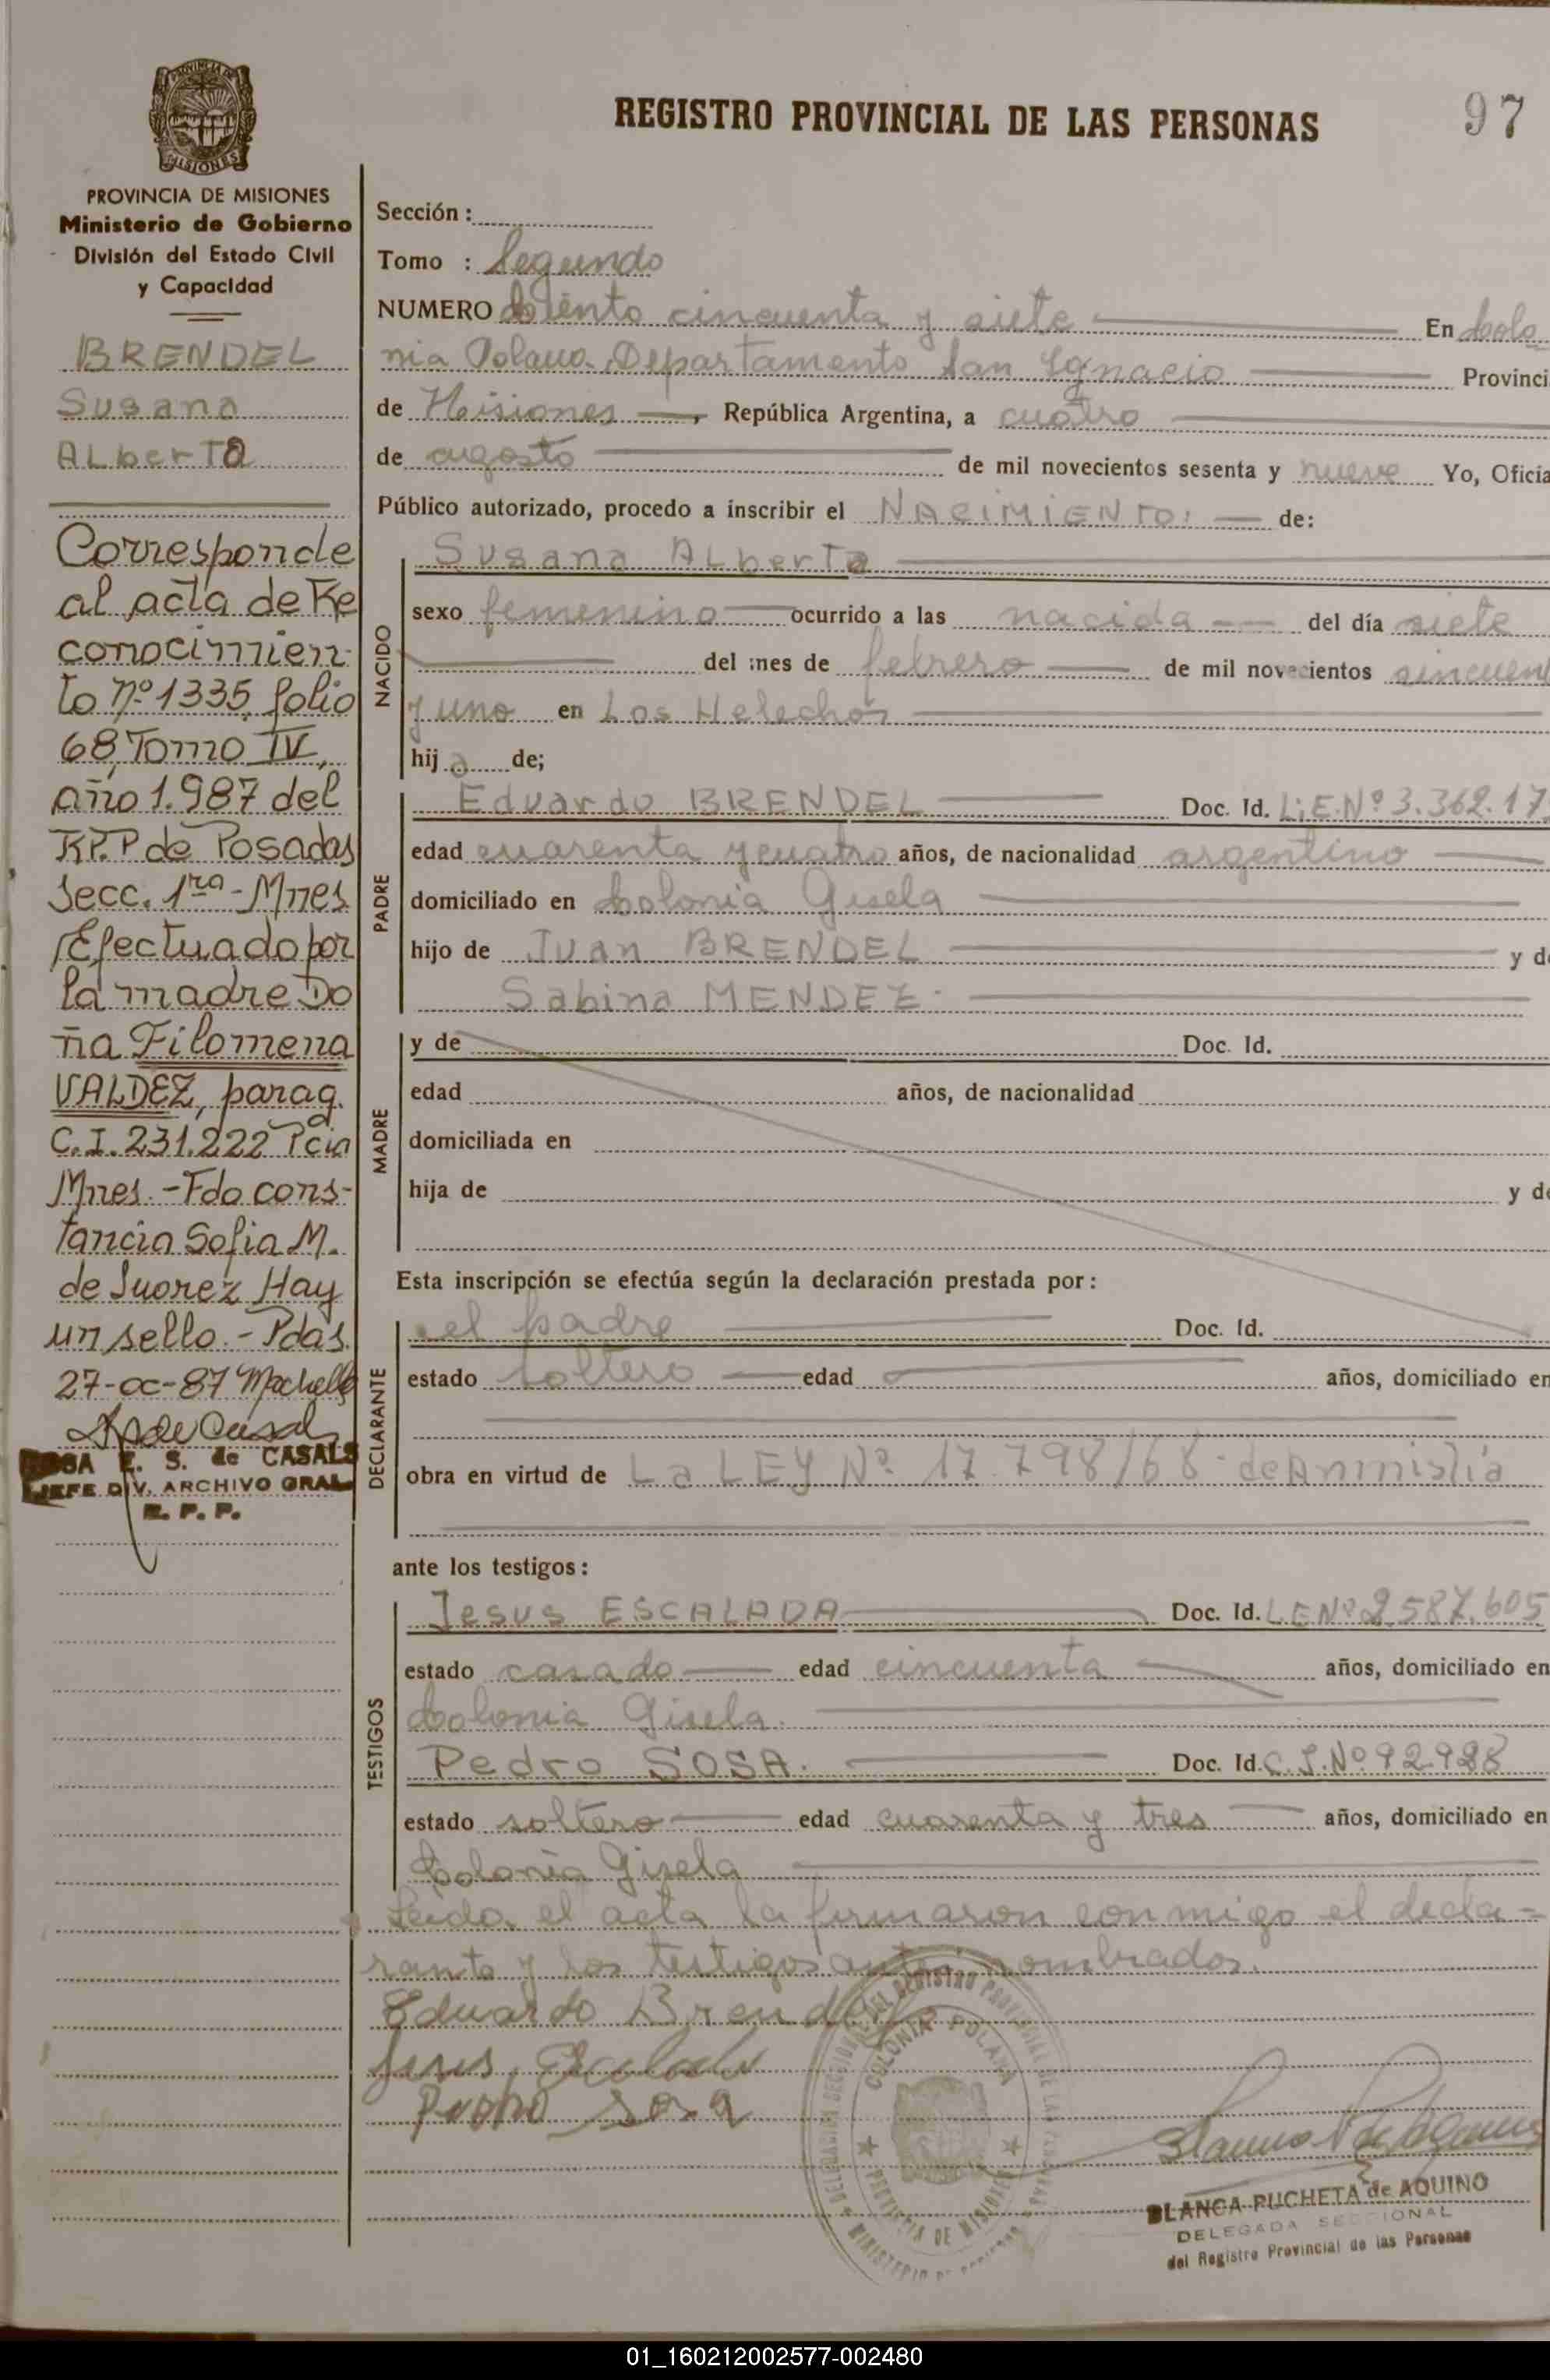 REGISTRO PROVINCIAL DE LAS PERSONAS
97
PROVINCIA DE MISIONES
Ministerio de Gobierno
División del Estado Civil
y Capacidad
BRENDEL
Susana
ALberTa
Corresponde
al acta de Re
conocimien-
to nº 1335, folio
68, Tomo IV,
año 1.987 del
R.P.P de Posadas
Secc. 1ra - Mnes
Efectuado por
la madre Do
ña Filomena
VALDEZ, parag.
C.I. 231.222 Pcia
Mnes. - Fdo cons-
tancia Sofia M.
de Suarez Hay
un sello. - Pdas.
27-oc-87
E. S. de CASALS
JEFE DIV. ARCHIVO GRAL
R. P. P.
Sección :
Tomo : Segundo
NUMERO ciento cincuenta y siete En Colo
nia Polana Departamento San Ignacio Provinci
de Misiones, República Argentina, a cuatro
de agosto de mil novecientos sesenta y nueve Yo, Oficia
Público autorizado, procedo a inscribir el NACIMIENTO: de:
NACIDO
Susana ALberTa
sexo femenino ocurrido a las nacida del día siete
del mes de febrero de mil novecientos cincuent
y uno en Los Helechos
hij a de;
PADRE
Eduardo BRENDEL Doc. Id. L.E.Nº 3.362.17
edad cuarenta y cuatro años, de nacionalidad argentino
domiciliado en Colonia Gisela
hijo de Juan BRENDEL y d
Sabina MENDEZ.
MADRE
y de Doc. Id.
edad años, de nacionalidad
domiciliada en
hija de y d
Esta inscripción se efectúa según la declaración prestada por :
DECLARANTE
el padre Doc. Id.
estado soltero edad años, domiciliado en
obra en virtud de La LEY Nº 17.798/68 de Amnistía
ante los testigos :
TESTIGOS
Jesus ESCALADA Doc. Id. L.E Nº 2.587.605
estado casado edad cincuenta años, domiciliado en
Colonia Gisela.
Pedro SOSA. Doc. Id. C.I. Nº 92.928
estado soltero edad cuarenta y tres años, domiciliado en
Colonia Gisela
Leída el acta la firmaron conmigo el decla-
rante y los testigos antes nombrados.
Eduardo Brendel
Jesus Escalada
Pedro Sosa
COLONIA POLANA
PROVINCIA DE MISIONES
BLANCA PUCHETA de AQUINO
DELEGADA SECCIONAL
del Registro Provincial de las Personas
01_160212002577-002480